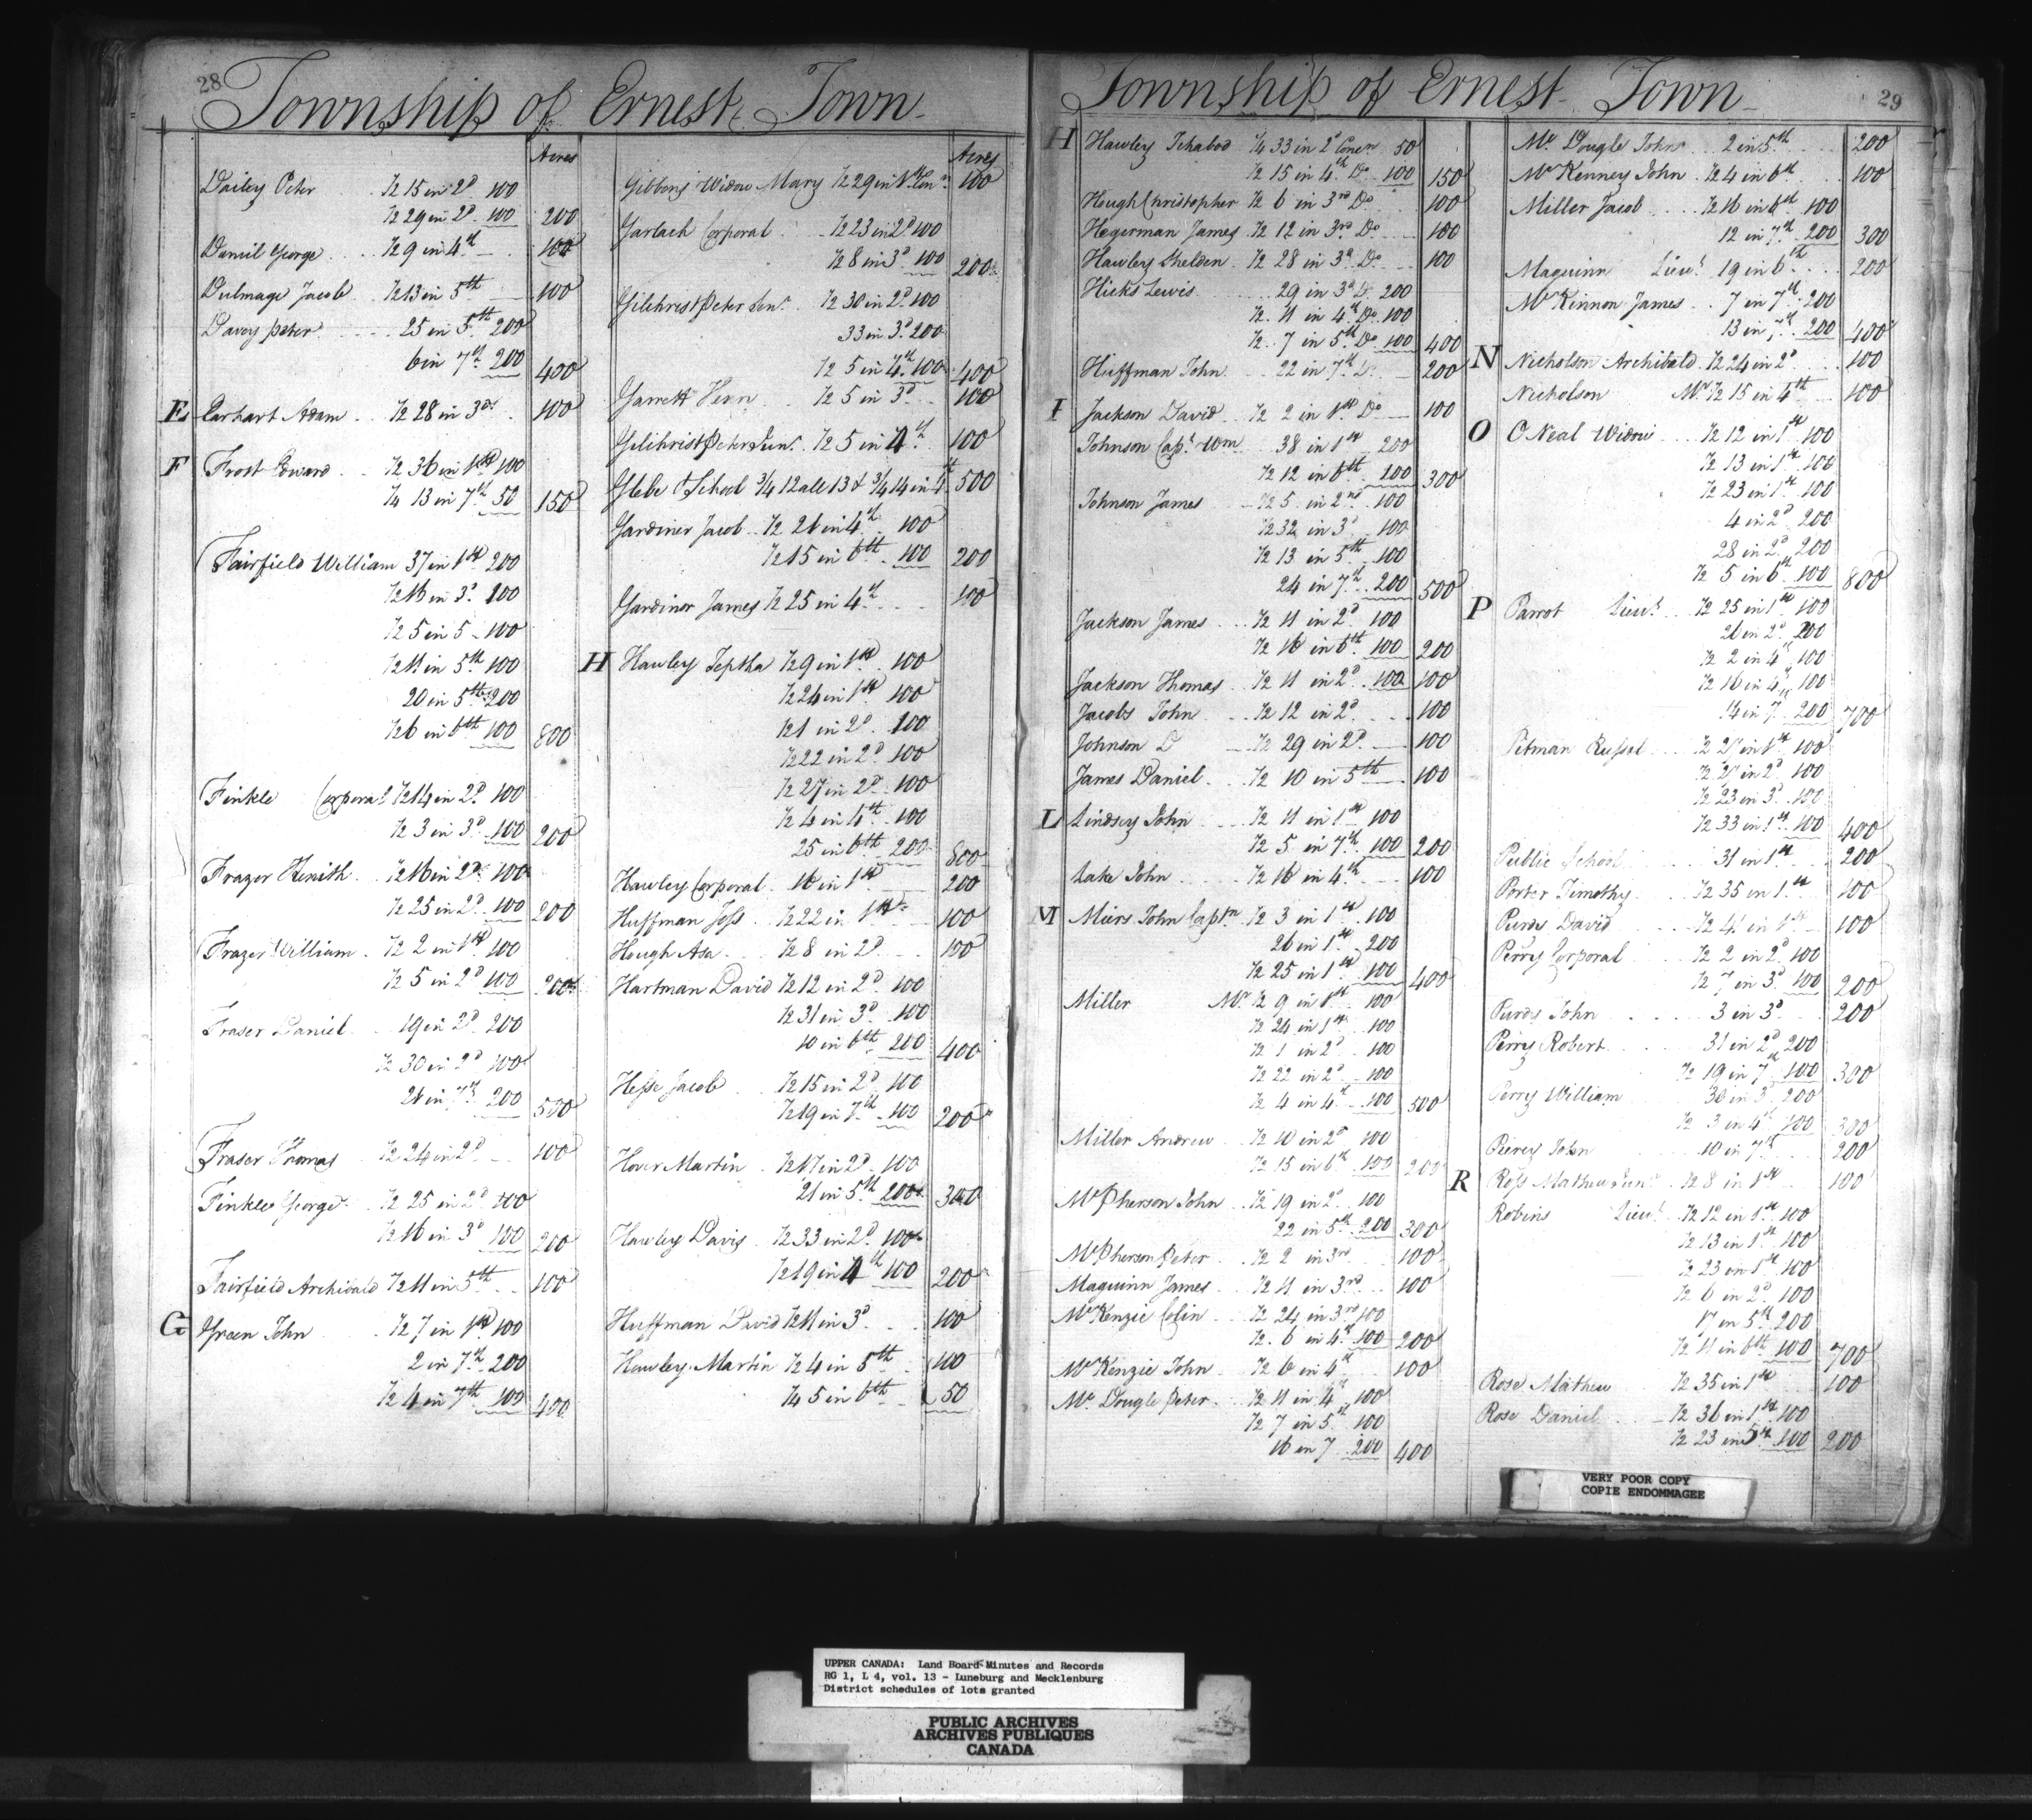 28
Township of Ernest Town
Acres
Dailey Peter ½ 15 in 2d 100
½ 29 in 2d 100 200
Daniel George ½ 9 in 4th 100
Dulmage Jacob ½ 13 in 5th 100
Davey Peter 25 in 5th 200
6 in 7th 200 400
E Earhart Adam ½ 28 in 3d 100
F Frost Edward ½ 36 in 1st 100
¼ 13 in 7th 50 150
Fairfield William 37 in 1st 200
½ 16 in 3d 100
½ 5 in 5 100
½ 11 in 5th 100
20 in 5th 200
½ 6 in 6th 100 800
Finkle Corporal ½ 14 in 2d 100
½ 3 in 3d 100 200
Frazer ½ 16 in 2d 100
½ 25 in 2d 100 200
Frazer William ½ 2 in 1st 100
½ 5 in 2d 100 200
Fraser Daniel 19 in 2d 200
½ 30 in 2d 100
21 in 7th 200 500
Fraser Thomas ½ 24 in 2d 100
Finkle George ½ 25 in 2d 100
½ 16 in 3d 100 200
Fairfield Archibald ½ 11 in 5th 100
G Green John ½ 7 in 1st 100
2 in 7th 200
½ 4 in 7th 100 400
Acres
Gibbons Widow Mary ½ 29 in 1st Conn 100
Garlach Corporal ½ 23 in 2d 100
½ 8 in 3d 100 200
Gilchrist Peter Senr ½ 30 in 2d 100
33 in 3d 200
½ 5 in 4th 100 400
Garrett Hern ½ 5 in 3d 100
Gilchrist Peter Junr ½ 5 in 4th 100
Glebe & School ¾ 12 all 13 & ¾ 14 in 4th 500
Gardiner Jacob ½ 21 in 4th 100
½ 15 in 6th 100 200
Gardiner James ½ 25 in 4th 100
H Hawley Jeptha ½ 9 in 1st 100
½ 24 in 1st 100
½ 1 in 2d 100
½ 22 in 2d 100
½ 27 in 2d 100
½ 4 in 4th 100
25 in 6th 200 800
Hawley Corporal 16 in 1st 200
Huffman Joss ½ 22 in 1st 100
Hough Asa ½ 8 in 2d 100
Hartman David ½ 12 in 2d 100
½ 31 in 3d 100
10 in 6th 200 400
Hesse Jacob ½ 15 in 2d 100
½ 19 in 7th 100 200
Hover Martin ½ 17 in 2d 100
21 in 5th 200 300
Hawley Davis ½ 33 in 2d 100
½ 19 in 4th 100 200
Huffman David ½ 11 in 3d 100
Hawley Martin ½ 4 in 5th 100
¼ 5 in 6th 50
Township of Ernest Town
29
H Hawley Ichabod ¼ 33 in 2d Concn 50
½ 15 in 4th Do 100 150
Hough Christopher ½ 6 in 3rd Do 100
Hegerman James ½ 12 in 3rd Do 100
Hawley Shelden ½ 28 in 3d Do 100
Hicks Lewis 29 in 3d Do 200
½ 11 in 4th Do 100
½ 7 in 5th Do 100 400
Huffman John 22 in 7th Do 200
I Jackson David ½ 2 in 1st Do 100
Johnson Capt Wm 38 in 1st 200
½ 12 in 6th 100 300
Johnson James ½ 5 in 2nd 100
½ 32 in 3d 100
½ 13 in 5th 100
24 in 7th 200 500
Jackson James ½ 11 in 2d 100
½ 16 in 6th 100 200
Jackson Thomas ½ 11 in 2d 100 100
Jacobs John ½ 12 in 2d 100
Johnson D ½ 29 in 2d 100
James Daniel ½ 10 in 5th 100
L Lindsey John ½ 11 in 1st 100
½ 5 in 7th 100 200
Lake John ½ 16 in 4th 100
M Miers John Captn ½ 3 in 1st 100
26 in 1st 200
½ 25 in 1st 100 400
Miller Mr ½ 9 in 1st 100
½ 24 in 1st 100
½ 1 in 2d 100
½ 22 in 2d 100
½ 4 in 4th 100 500
Miller Andrew ½ 10 in 2d 100
½ 15 in 6th 100 200
McPherson John ½ 19 in 2d 100
22 in 5th 200 300
McPherson Peter ½ 2 in 3rd 100
Maguinn James ½ 11 in 3rd 100
McKenzie Colin ½ 24 in 3rd 100
½ 6 in 4th 100 200
McKenzie John ½ 6 in 4th 100
Mc Dougle Peter ½ 11 in 4th 100
½ 7 in 5th 100
16 in 7 200 400
Mc Dougle John 2 in 5th 200
McKenney John ½ 4 in 6th 100
Miller Jacob ½ 16 in 6th 100
12 in 7th 200 300
Maguinn Lieut 19 in 6th 200
McKinnon James 7 in 7th 200
13 in 7th 200 400
N Nicholson Archibald ½ 24 in 2d 100
Nicholson Mr ½ 15 in 4th 100
O O Neal Widow ½ 12 in 1st 100
½ 13 in 1st 100
½ 23 in 1st 100
4 in 2d 200
28 in 2d 200
½ 5 in 6th 100 800
P Parrot Lieut ½ 25 in 1st 100
26 in 2d 200
½ 2 in 4th 100
½ 16 in 4th 100
14 in 7 200 700
Pitman Russel ½ 21 in 1st 100
½ 21 in 2d 100
½ 23 in 3d 100
½ 33 in 1st 100 400
Public School 31 in 1st 200
Porter Timothy ½ 35 in 1st 100
Purdy David ½ 4 in 1st 100
Perry Corporal ½ 2 in 2d 100
½ 7 in 3d 100 200
Purdy John 3 in 3d 200
Perry Robert 31 in 2d 200
½ 19 in 7th 100 300
Perry William 36 in 3d 200
½ 3 in 4th 100 300
Pierey John 10 in 7th 200
R Ross Mathew Junr ½ 8 in 1st 100
Robins Lieut ½ 12 in 1st 100
½ 13 in 1st 100
½ 23 in 1st 100
½ 6 in 2d 100
17 in 5th 200
½ 11 in 6th 100 700
Rose Mathew ½ 35 in 1st 100
Rose Daniel ½ 36 in 1st 100
½ 23 in 5th 100 200
VERY POOR COPY
COPIE ENDOMMAGEE
UPPER CANADA: Land Board Minutes and Records
RG 1, L 4, vol. 13 - Luneburg and Mecklenburg
District schedules of lots granted
PUBLIC ARCHIVES
ARCHIVES PUBLIQUES
CANADA